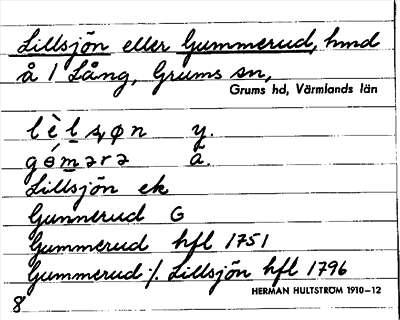 Lillsjön eller Gummerud, hmd
å 1 Lång, Grums sn,
Grums hd, Värmlands län
lèlsɔøn y.
gómərə ä.
Lillsjön ek
Gunnerud G
Gummerud hfl 1751
Gummerud ./. Lillsjön hfl 1796
HERMAN HULTSTRÖM 1910–12
8